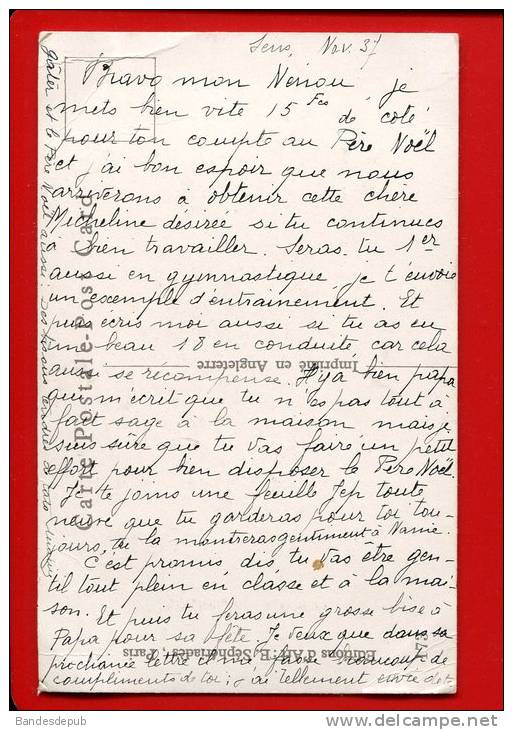 Sens, Nov. 37
Bravo mon Nenou, je
mets bien vite 15 Fcs de coté
pour ton compte au Père Noël
et j'ai bon espoir que nous
arriverons à obtenir cette chère
Micheline désirée si tu continues
à bien travailler. Seras-tu 1er
aussi en gymnastique, je t'envoie
un exemple d'entrainement. Et
puis écris moi aussi si tu as eu
un beau 18 en conduite car cela
aussi se récompense. Il y a bien papa
qui m'écrit que tu n'es pas tout à
fait sage à la maison mais je
suis sûre que tu vas faire un petit
effort pour bien disposer le Père Noël.
Je te joins une feuille Jep toute
neuve que tu garderas pour toi tou-
jours, tu la montreras gentiment à Nanie.
C'est promis dis, tu vas être gen-
til tout plein en classe et à la mai-
son. Et puis tu feras une grosse bise à
Papa pour sa fête. Je veux que dans sa
prochaine lettre il me fasse beaucoup de
compliments de toi ; j'ai tellement envie de te
gâter et le Père Noël aussi. Des bisous tendres de
Carte Postale-Post Card
Imprimé en Angleterre
Editions d'Art: E. Sépheriades, Paris
Bandesdepub
www.delcampe.net